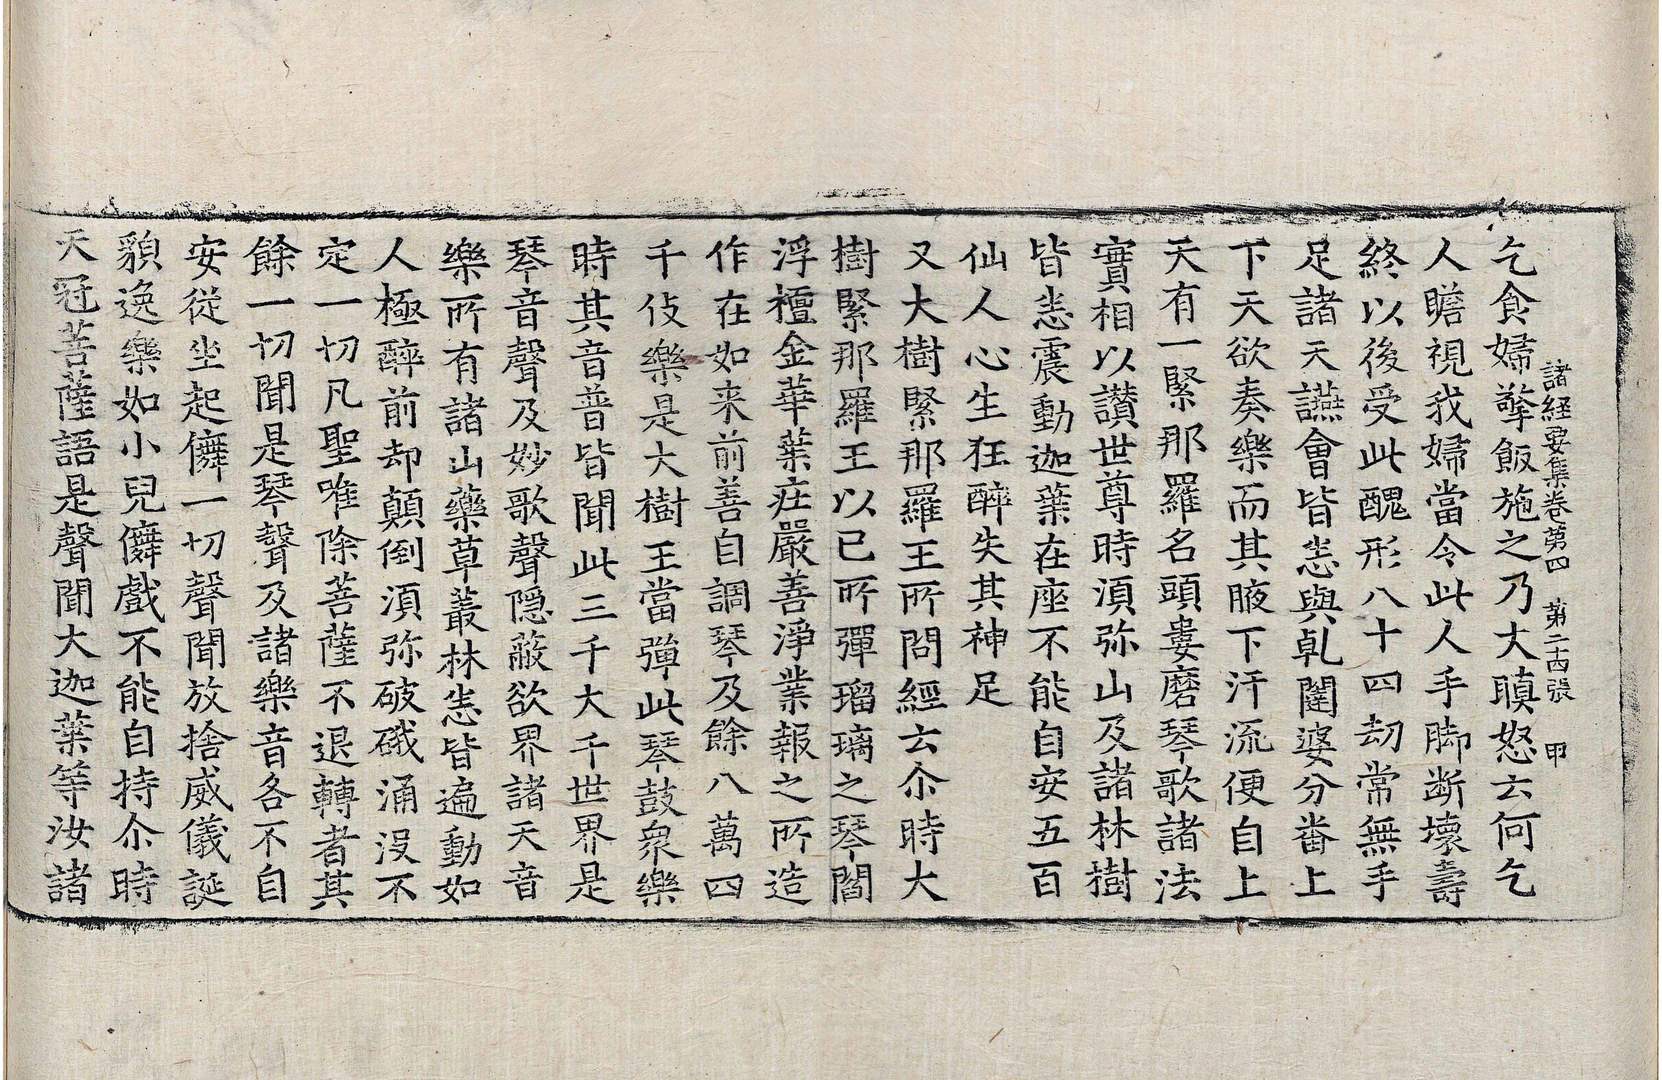 諸經要集卷第四　第二十四張　甲
乞食婦擎飯施之乃大瞋怒云何乞
人瞻視我婦當令此人手脚斷壞壽
終以後受此醜形八十四劫常無手
足諸天讌會皆悉與乹闥婆分番上
下天欲奏樂而其腋下汗流便自上
天有一緊那羅名頭婁磨琴歌諸法
實相以讃世尊時湏弥山及諸林樹
皆悉震動迦葉在座不能自安五百
仙人心生狂醉失其神足
又大樹緊那羅王所問經云尒時大
樹緊那羅王以已所彈瑠璃之琴閻
浮檀金華葉庄嚴善淨業報之所造
作在如来前善自調琴及餘八萬四
千伎樂是大樹王當彈此琴鼓衆樂
時其音普皆聞此三千大千世界是
琴音聲及妙歌聲隱蔽欲界諸天音
樂所有諸山藥草叢林悉皆遍動如
人極醉前却顛倒湏弥破硪涌没不
定一切凡聖唯除菩薩不退轉者其
餘一切聞是琴聲及諸樂音各不自
安從坐起儛一切聲聞放捨威儀誕
貌逸樂如小兒儛戲不能自持尒時
天冠菩薩語是聲聞大迦葉等汝諸